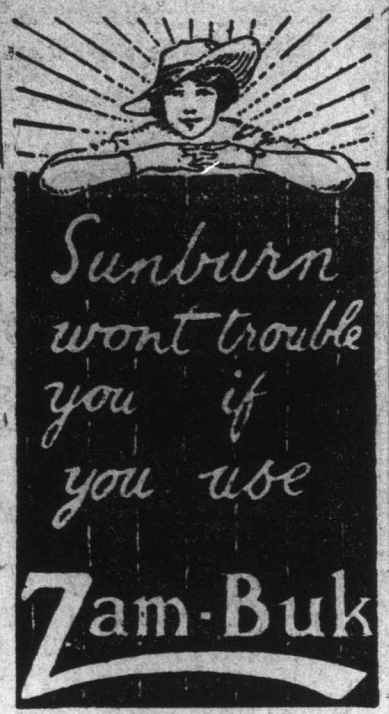 Sunburn
wont trouble
you if
you use
Zam-Buk